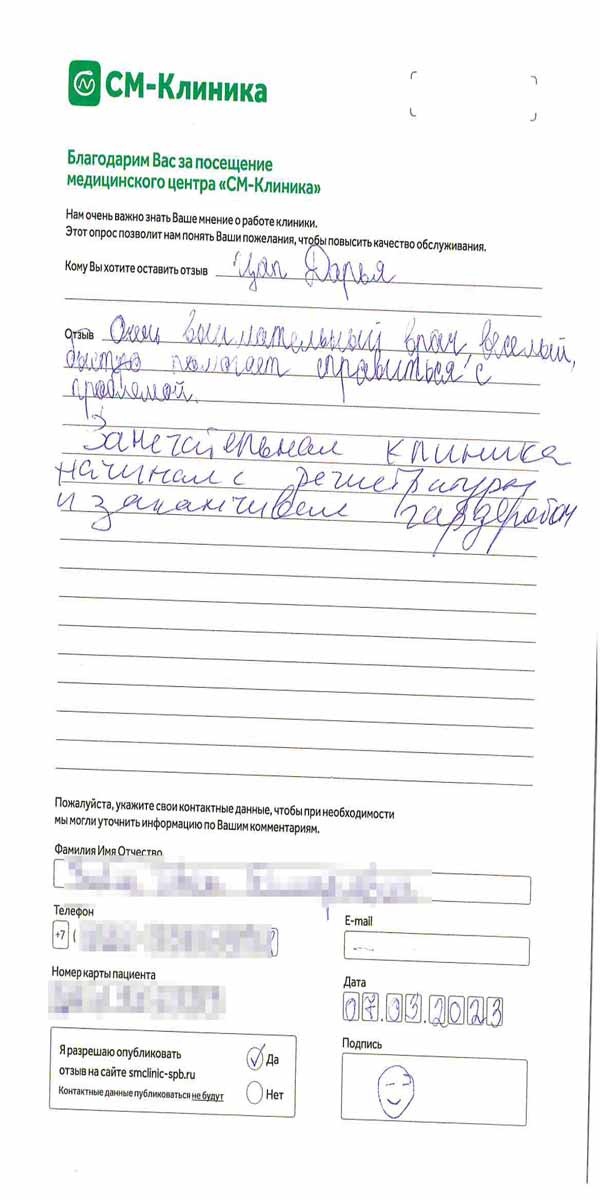 СМ-Клиника
Благодарим Вас за посещение
медицинского центра «СМ-Клиника»
Нам очень важно знать Ваше мнение о работе клиники.
Этот опрос позволит нам понять Ваши пожелания, чтобы повысить качество обслуживания.
Кому Вы хотите оставить отзыв Цап Дарья
Отзыв Очень внимательный врач, веселый,
быстро помогает справиться с
проблемой.
Замечательная клиника
начиная с регистратуры
и заканчивая гардеробом
Пожалуйста, укажите свои контактные данные, чтобы при необходимости
мы могли уточнить информацию по Вашим комментариям.
Фамилия Имя Отчество
Телефон
+7 (
E-mail
—
Номер карты пациента
Дата
07.03.2023
Я разрешаю опубликовать
отзыв на сайте smclinic-spb.ru
Контактные данные публиковаться не будут
Да
Нет
Подпись